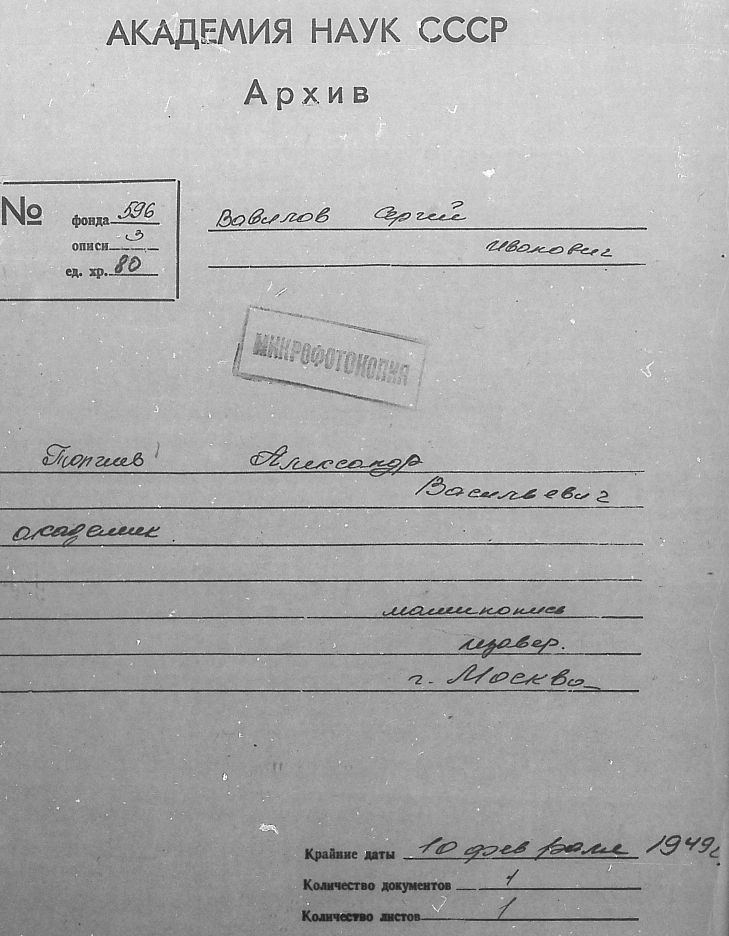 АКАДЕМИЯ НАУК СССР
Архив
№
фонда 596
описи 3
ед. хр. 80
Вавилов Сергей
Иванович
МИКРОФОТОКОПИЯ
Топчиев Александр
Васильевич
академик
машинопись
г. Москва
Крайние даты 10 февраля 1949г.
Количество документов 1
Количество листов 1